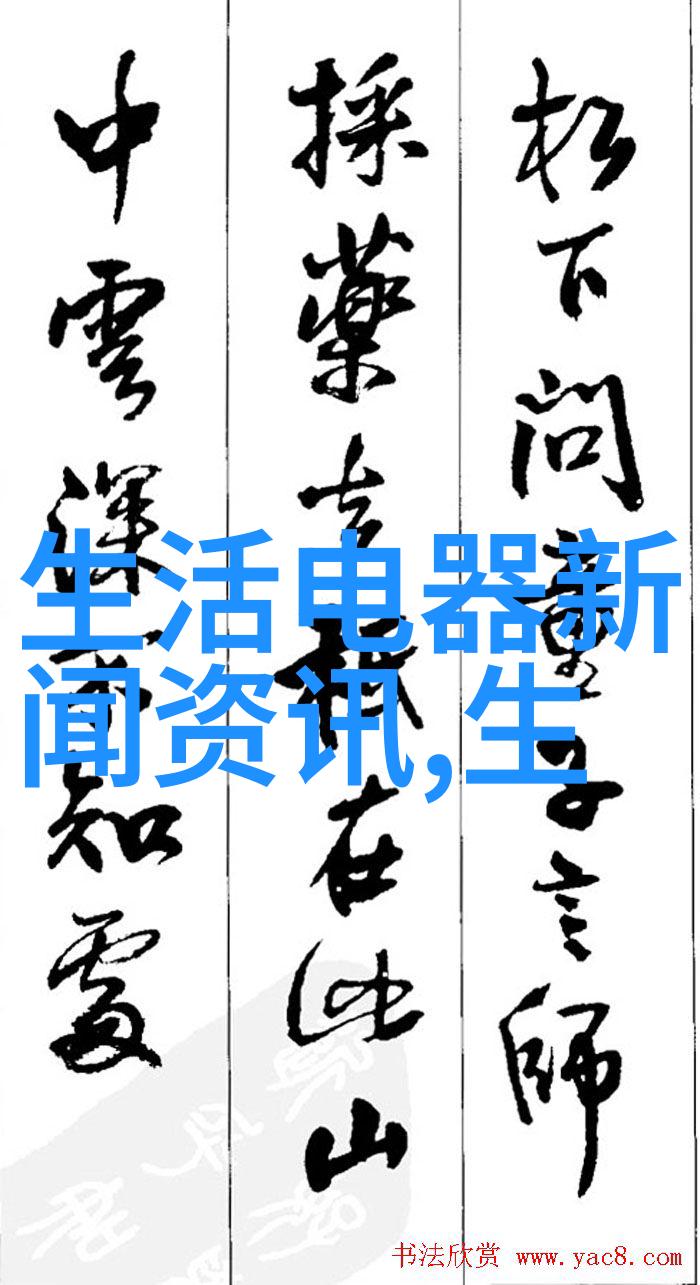 松下问童子言師
採藥去祇在此山
中雲深不知處
生活电器新
闻资讯,生
书法欣赏 www.yac8.com